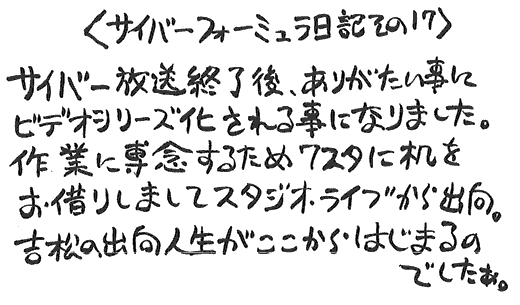 〈サイバーフォーミュラ日記その17〉
サイバー放送終了後、ありがたい事に
ビデオシリーズ化される事になりました。
作業に専念するため7スタに机を
お借りしましてスタジオ・ライブから出向。
吉松の出向人生がここからはじまるの
でしたぁ。